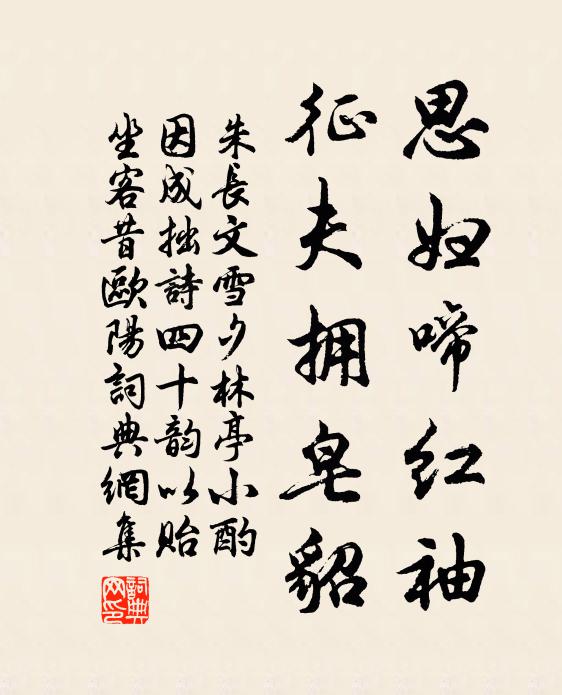 思妇啼红袖
征夫拥皂貂
朱長文雪夕林亭小酌
因成拙詩四十韵以貽
坐客昔歐陽詞典網集
詞典网印